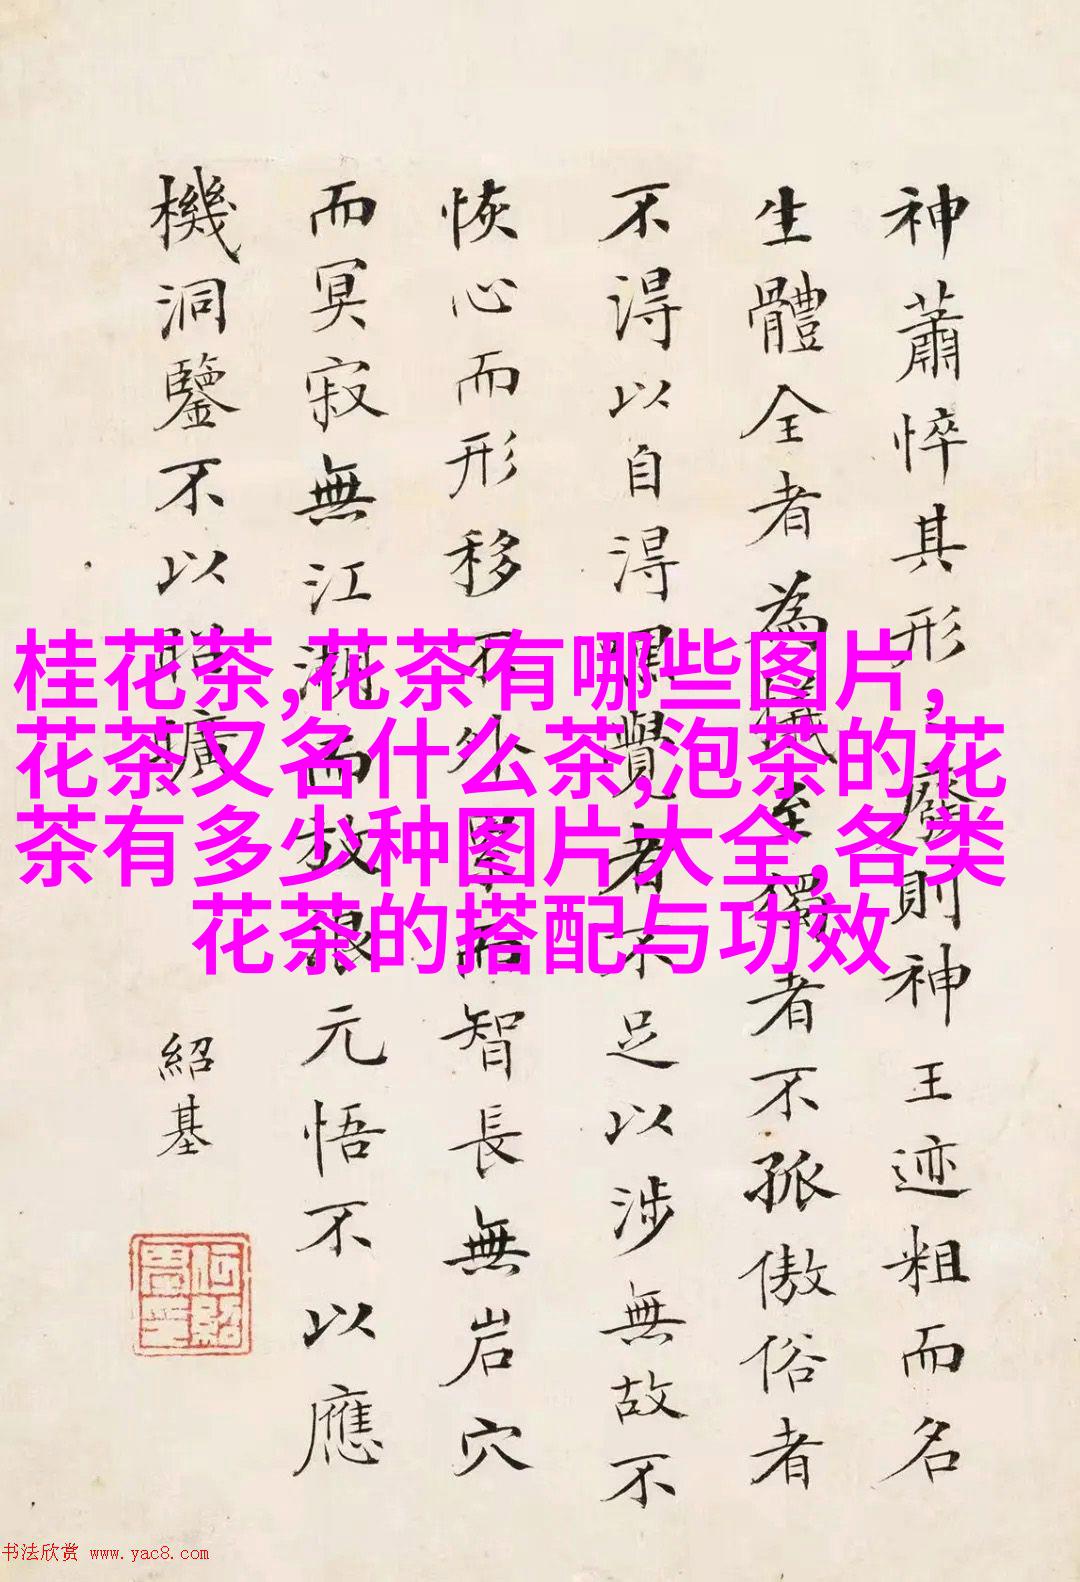 桂花茶,花茶有哪些图片,
花茶又名什么茶,泡茶的花
茶有多少种图片大全,各类
花茶的搭配与功效
神蕭悴其形廢則神王迹粗而名
生體全者為至獨者不孤傲俗者
不得以自得覺者不足以涉無故不
恢心而形移不外而智長無岩穴
而冥寂無江湖而放浪元悟不以應
機洞鑒不以曠
紹基
书法欣赏 www.yac8.com